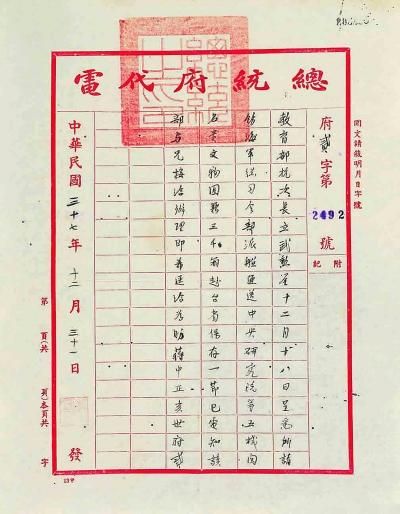 總統府代電
文請敘明月日字號
府貳字第2492號
附記
教育部杭次長立武勳鑒十二月十八日呈為所請
飭海軍總司令部派艦運送中央研究院等五機關
文物圖三千箱赴台省保存一節已電知該
部接洽辦理即希逕洽為盼蔣中正亥世府貳
中華民國三十七年十二月三十一日發
第頁共頁